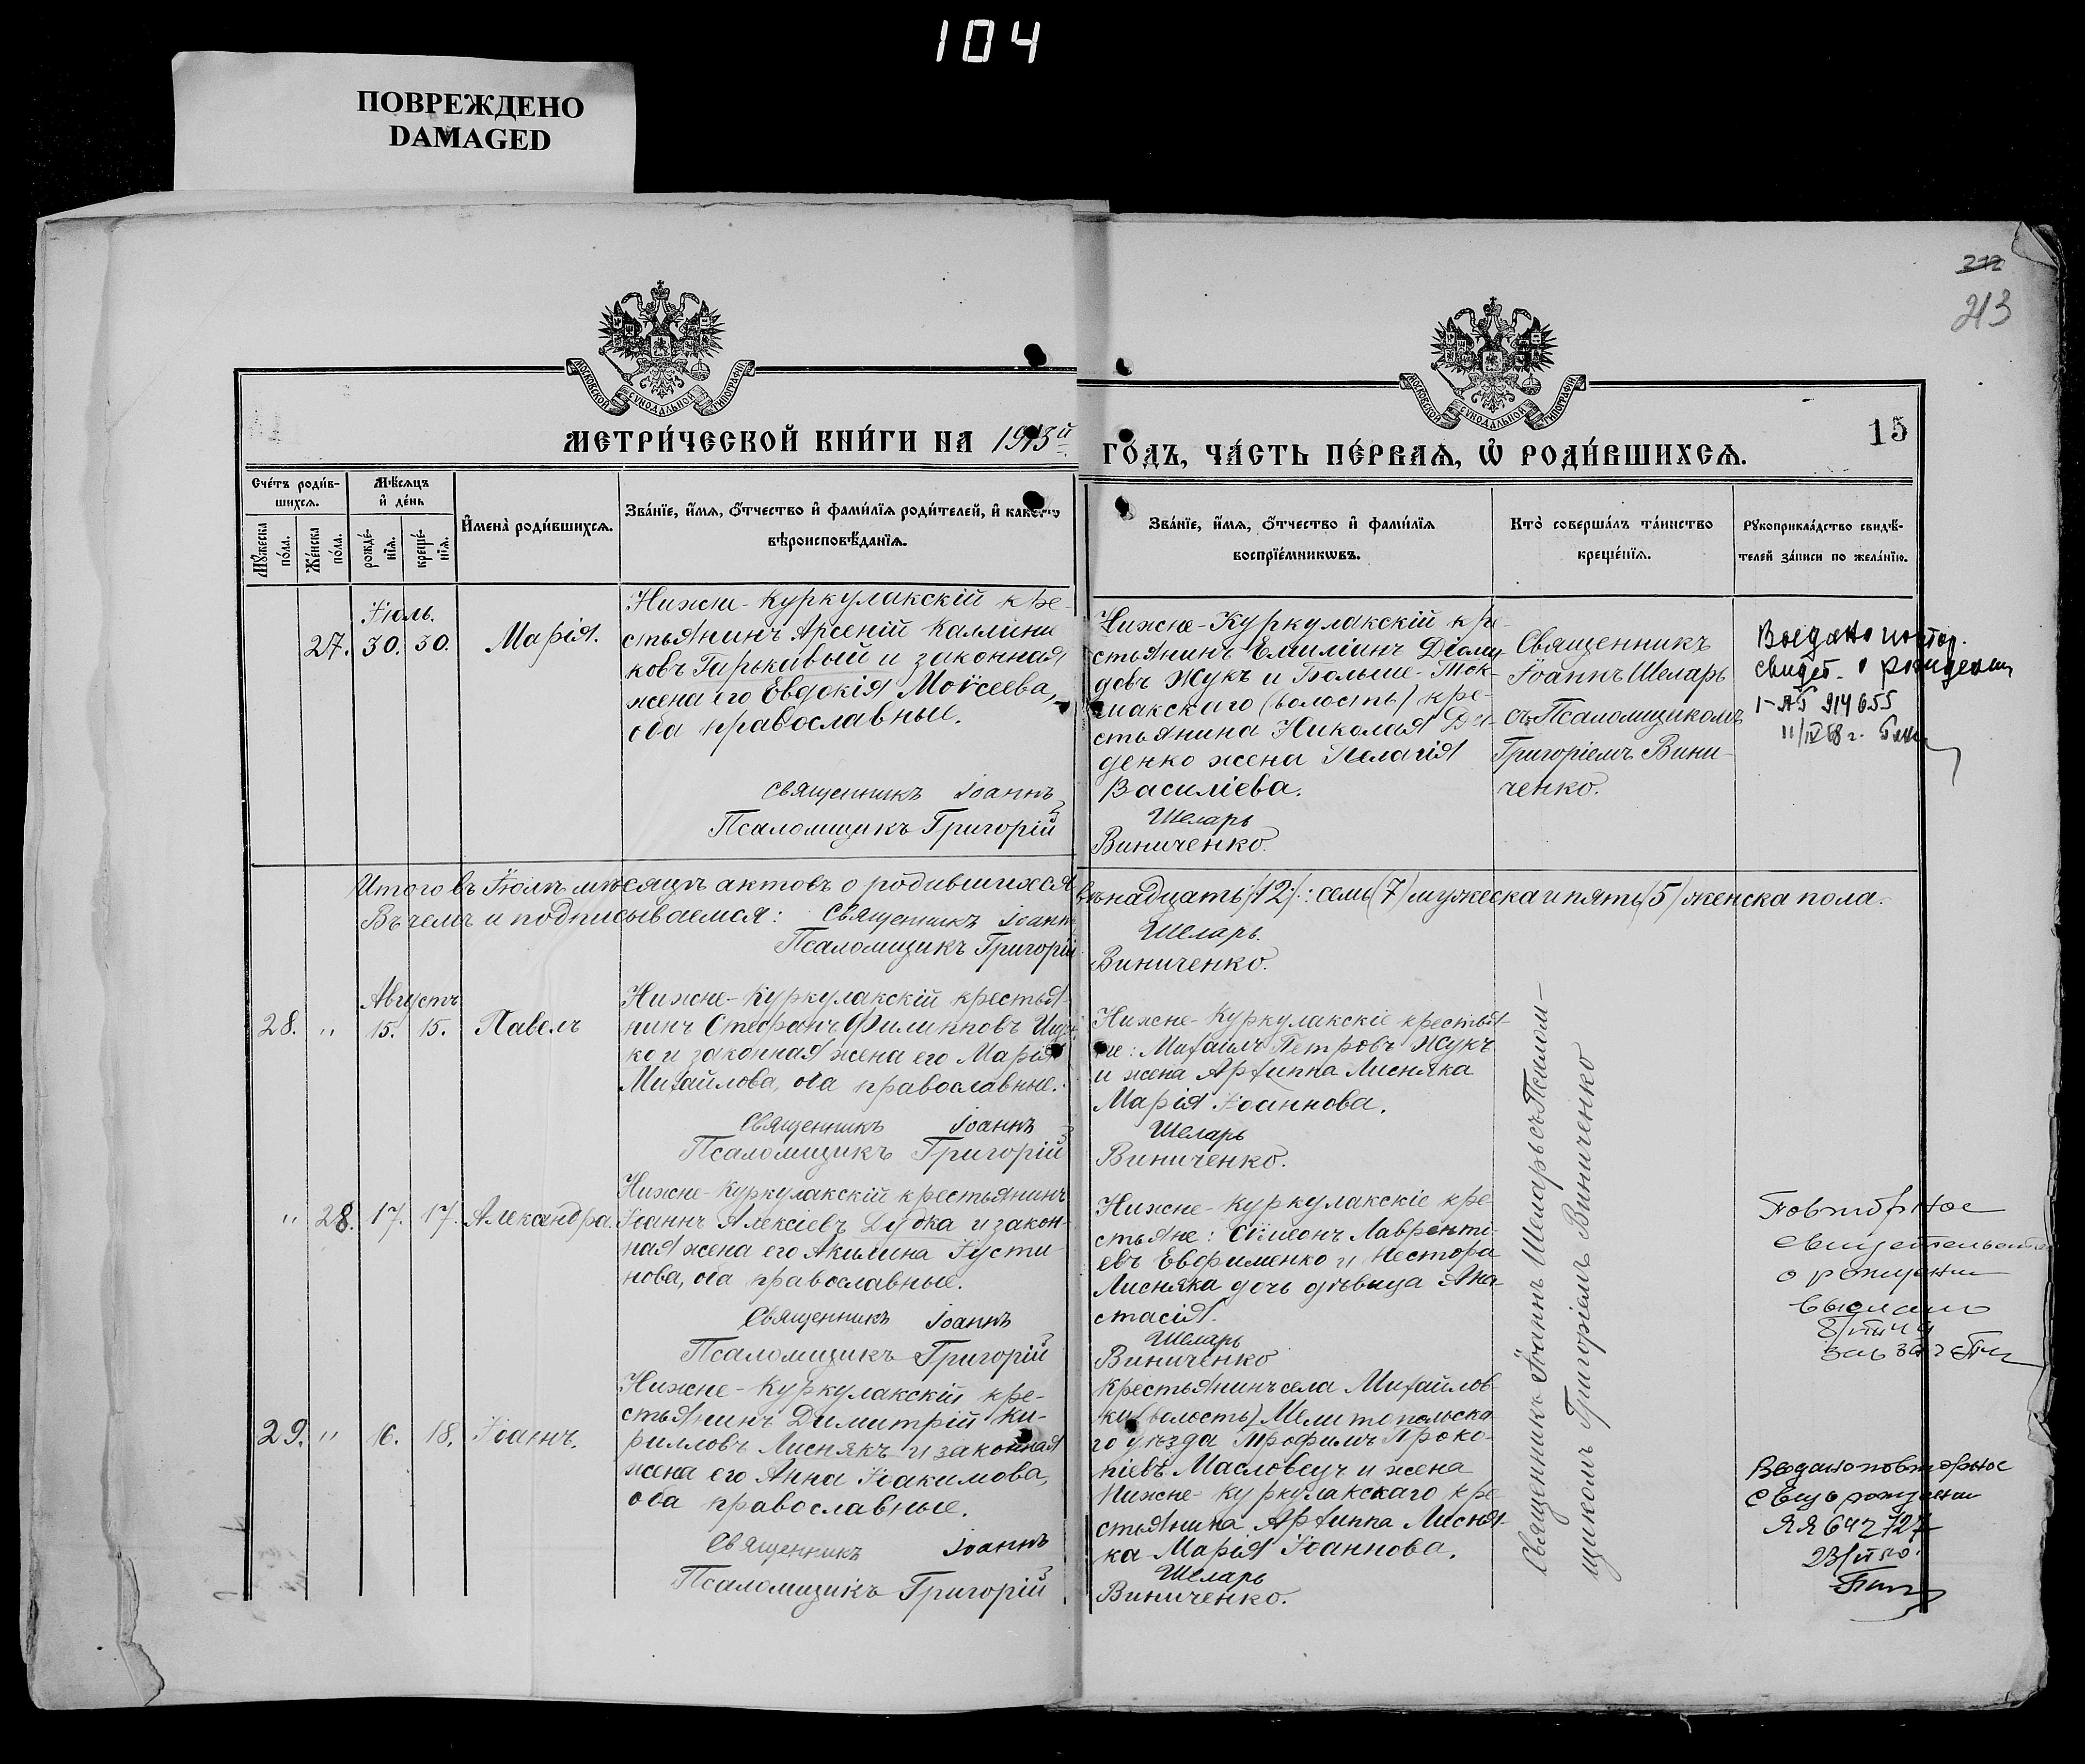 104
ПОВРЕЖДЕНО
DAMAGED
212
213
МОСКОВСКОЙ СѴНОДАЛЬНОЙ ТИПОГРАФІИ
МОСКОВСКОЙ СѴНОДАЛЬНОЙ ТИПОГРАФІИ
15
МЕТРИ́ЧЕСКОЙ КНИ́ГИ НА 1913й
ГО́ДЪ, ЧА́СТЬ ПЕ́РВАѦ, Ѡ҆ РОДИ́ВШИХСѦ.
Сче́тъ роди́в-
шихсѧ.
Мѣ́сяцъ
и҆ де́нь
Мꙋ́жеска
по́ла.
Же́нска
по́ла.
рожде́-
нїѧ.
креще́-
нїѧ.
И҆мена̀ роди́вшихсѧ.
Зва́нїе, и҆́мѧ, ѻ҆́тчество и҆ фами́лїѧ роди́телей, и҆ како́гѡ
вѣроисповѣ́данїѧ.
Зва́нїе, и҆́мѧ, ѻ҆́тчество и҆ фами́лїѧ
воспрїе́мникѡвъ.
Кто̀ соверша́лъ та́инство
креще́нїѧ.
Рꙋкоприкла́дство свидѣ́-
телей за́писи по жела́нїю.
Іюль.
27. 30. 30. Марія.
Нижне-Куркулакскій кре-
стьянинъ Арсеній Каллини
ковъ Гарькавый и законная
жена его Евдокія Моѵсеева,
оба православные.
Священникъ Іоаннъ
Псаломщикъ Григорій
Нижне-Куркулакскій кре-
стьянинъ Емиліанъ Діоми
довъ Жукъ и Больше-Ток-
макскаго (волость) кре-
стьянина Николая Ди-
денко жена Пелагія
Василіева.
Шеларь
Виниченко.
Священникъ
Іоаннъ Шеларь
съ Псаломщикомъ
Григоріемъ Вини-
ченко.
Выдано повтор.
свидет. о рождении
I-АБ 914655
11/IV 68 г.
Итого въ Іюлѣ мѣсяцѣ актовъ о родившихся двѣнадцать (12): семь (7) мужеска и пять (5) женска пола.
Въ чемъ и подписываемся: Священникъ Іоаннъ Шеларь.
Псаломщикъ Григорій Виниченко.
Августъ
28. " 15. 15. Павелъ
Нижне-Куркулакскій крестья-
нинъ Стефанъ Филипповъ
ко и законная жена его Марія
Михайлова, оба православные.
Священникъ Іоаннъ
Псаломщикъ Григорій
Нижне-Куркулакскіе крестья-
не: Михаилъ Петровъ Жукъ
и жена Архиппа Лисняка
Марія Іоаннова.
Шеларь
Виниченко.
" 28. 17. 17. Александра.
Нижне-Куркулакскій крестьянинъ
Іоаннъ Алексіевъ Дудка и закон-
ная жена его Акилина Іусти-
нова, оба православные.
Священникъ Іоаннъ
Псаломщикъ Григорій
Нижне-Куркулакскіе кре-
стьяне: Сѵмеонъ Лавренті-
евъ Евфименко и Нестора
Лисняка дочь дѣвица Ана-
стасія.
Шеларь
Виниченко
Повторное
свидетельство
о рождении
выслано
29. " 16. 18. Іоаннъ.
Нижне-Куркулакскій кре-
стьянинъ Димитрій Ки-
рилловъ Лиснякъ и законная
жена его Анна Іоакимова,
оба православные.
Священникъ Іоаннъ
Псаломщикъ Григорій
Крестьянинъ села Михайлов-
ки (волость) Мелитопольска-
го уѣзда Трофимъ Проко-
піевъ Масловецъ и жена
Нижне-Куркулакскаго кре
стьянина Архиппа Лисня-
ка Марія Іоаннова.
Шеларь
Виниченко.
Священникъ Іоаннъ Шеларь съ Псалом-
щикомъ Григоріемъ Виниченко
Выдано повторное
свид о рождении
ЯЯ 642727